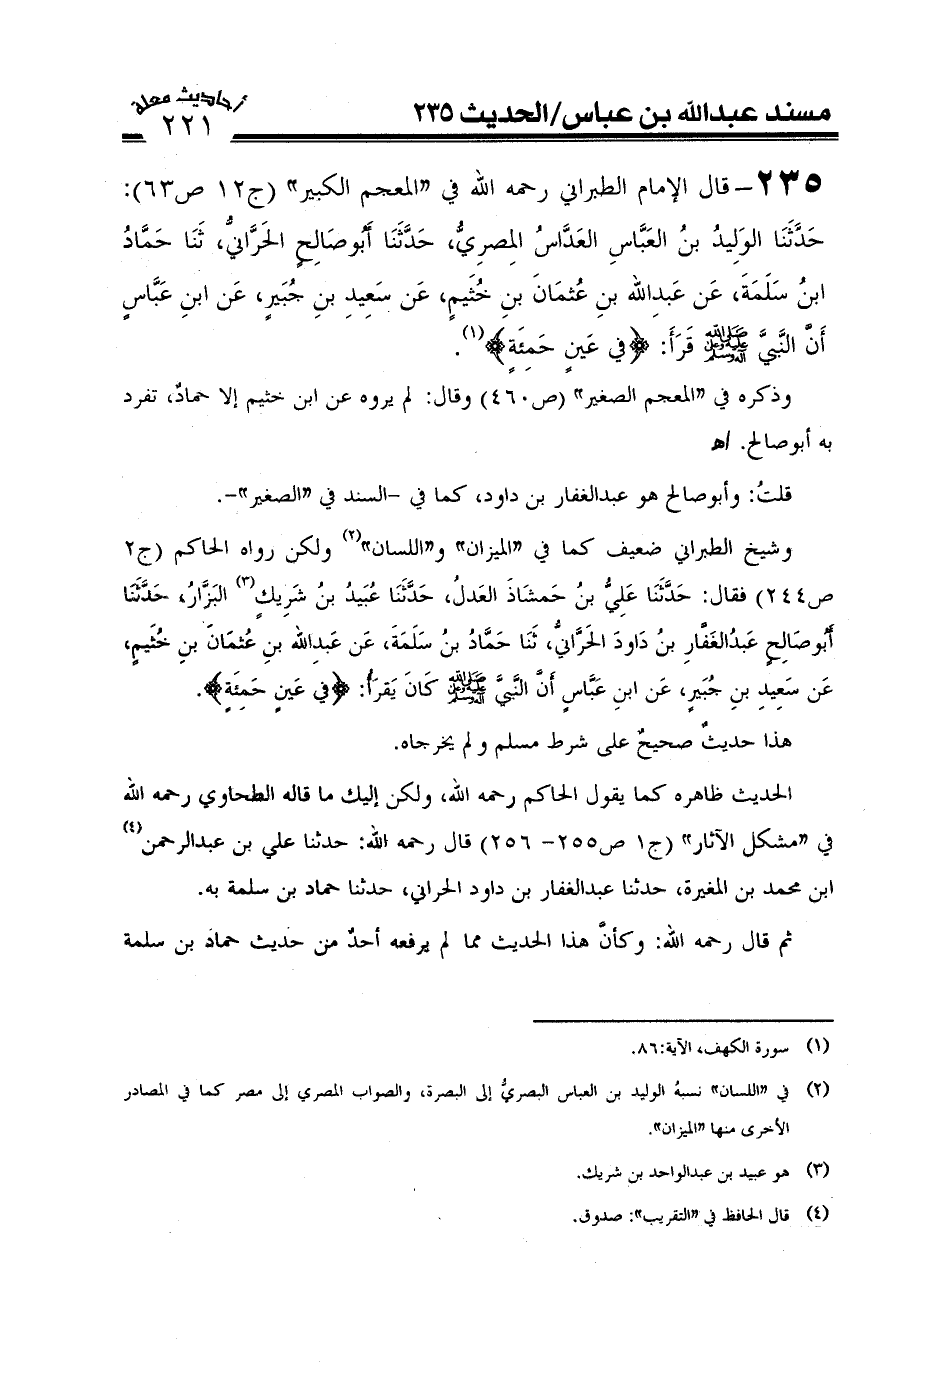 مسند عبدالله بن عباس/الحديث ٢٣٥
أحاديث معلة
٢٢١
٢٣٥ – قال الإمام الطبراني رحمه الله في «المعجم الكبير» (ج١٢ ص٦٣):
حَدَّثَنَا الوَلِيدُ بنُ العَبَّاسِ العَدَّاسُ المِصرِيُّ، حَدَّثَنَا أَبُوصَالِحٍ الحَرَّانيُّ، ثَنَا حَمَّادُ
ابنُ سَلَمَةَ، عَن عَبدِالله بنِ عُثمَانَ بنِ خُثَيمٍ، عَن سَعِيدِ بنِ جُبَيرٍ، عَن ابنِ عَبَّاسٍ
أَنَّ النَّبيَّ ﷺ قَرَأَ: ﴿في عَينٍ حَمِئَةٍ﴾(١).
وذكره في «المعجم الصغير» (ص٤٦٠) وقال: لم يروه عن ابن خثيم إلا حمادٌ، تفرد
به أبوصالح. اﻫ
قلتُ: وأبوصالح هو عبدالغفار بن داود، كما في –السند في «الصغير»–.
وشيخ الطبراني ضعيف كما في «الميزان» و«اللسان»(٢) ولكن رواه الحاكم (ج٢
ص٢٤٤) فقال: حَدَّثَنَا عَليُّ بنُ حَمشَاذَ العَدلُ، حَدَّثَنَا عُبَيدُ بنُ شَرِيكٍ(٣) البَزَّارُ، حَدَّثَنَا
أَبُوصَالِحٍ عَبدُالغَفَّارِ بنُ دَاودَ الحَرَّانيُّ، ثَنَا حَمَّادُ بنُ سَلَمَةَ، عَن عَبدِالله بنِ عُثمَانَ بنِ خُثَيمٍ،
عَن سَعِيدِ بنِ جُبَيرٍ، عَن ابنِ عَبَّاسٍ أَنَّ النَّبيَّ ﷺ كَانَ يَقرَأُ: ﴿في عَينٍ حَمِئَةٍ﴾.
هذا حديثٌ صحيحٌ على شرط مسلم ولم يخرجاه.
الحديث ظاهره كما يقول الحاكم رحمه الله، ولكن إليك ما قاله الطحاوي رحمه الله
في «مشكل الآثار» (ج١ ص٢٥٥– ٢٥٦) قال رحمه الله: حدثنا علي بن عبدالرحمن(٤)
ابن محمد بن المغيرة، حدثنا عبدالغفار بن داود الحراني، حدثنا حماد بن سلمة به.
ثم قال رحمه الله: وكأنَّ هذا الحديث مما لم يرفعه أحدٌ من حديث حماد بن سلمة
(١) سورة الكهف، الآية:٨٦.
(٢) في «اللسان» نسبهُ الوليد بن العباس البصريُّ إلى البصرة، والصواب المصري إلى مصر كما في المصادر
الأخرى منها «الميزان».
(٣) هو عبيد بن عبدالواحد بن شريك.
(٤) قال الحافظ في «التقريب»: صدوق.